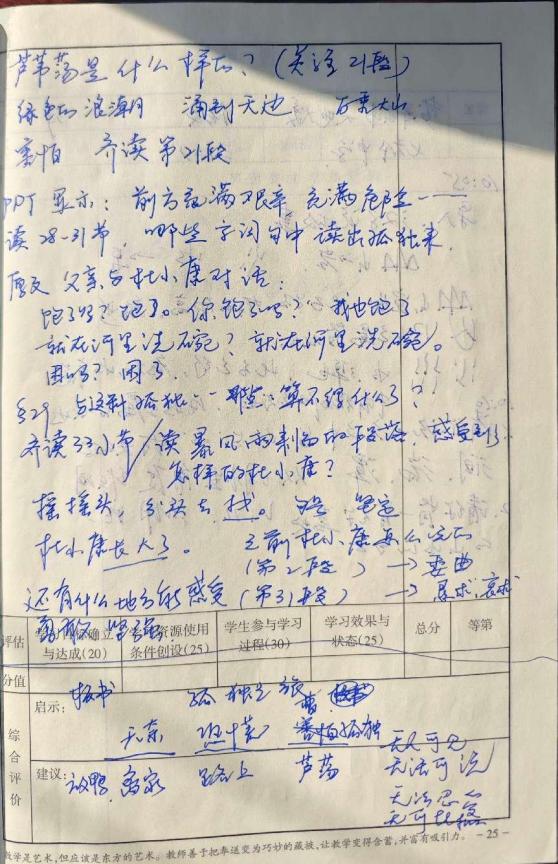 芦苇荡是什么样的？（关注21段）
绿色的浪潮 涌到天边 大山
害怕 齐读第21段
PPT 显示：前方充满艰辛 充满危险……
读28-31节 哪些字词句中读出孤独来
原文 父亲与杜小康对话：
饱了吗？饱了。你饱了吗？ 我也饱了
就在河里洗碗？就在河里洗碗。
困吗？困了
§29 与这种孤独…… 那点…算不得什么了？
齐读33小节/读暴风雨来临的段落，感受到了
怎样的杜小康？
摇摇头，回头去找。 坚定
杜小康长大了。 之前杜小康怎么说的
（第2段）→委曲
还有什么地方能感受（第31段）→哀求
勇敢 坚强
评估 确立与达成(20) 资源使用条件创设(25) 学生参与学习过程(30) 学习效果与状态(25) 总分 等第
分值
启示： 板书 孤独之旅
无奈 恐慌 害怕孤独
综合评价
建议： 放鸭 离家 路上 芦荡
无人可见
无话可说
教学是艺术，但应该是东方的艺术。教师善于把奉送变为巧妙的藏掖，让教学变得含蓄，并富有吸引力。 －25－